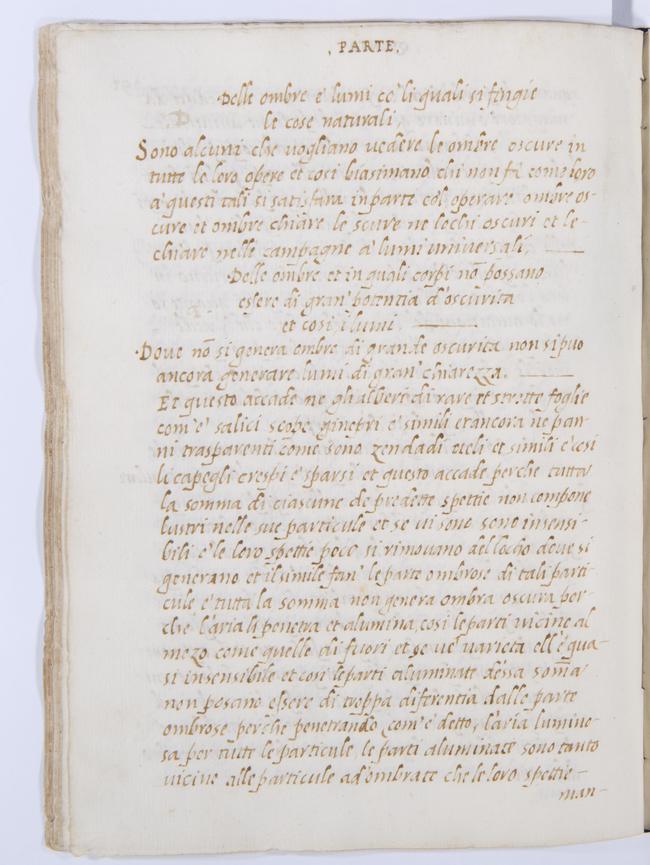 . PARTE .
Delle ombre e lumi cō li quali si fingie
le cose naturali
Sono alcuni che vogliano vedere le ombre oscure in
tutte le loro opere et cosi biasimano chi non fa come loro
a' questi tali si satisfara in parte col operare ombre os-
cure et ombre chiare le scure ne lochi oscuri et le-
chiare nelle campagne a' lumi universali,
Delle ombre et in quali corpi nō possano
essere di gran' potentia d'oscurita
et cosi i lumi.
Dove nō si genera ombre di grande oscurita non si puo
ancora generare lumi di gran' chiarezza.
Et questo accade ne gli alberi di rare et strette foglie
com'e' salici scope ginepri e' simili et ancora ne pan-
ni trasparenti come sono zendadi veli et simili e' cosi
li capegli crespi e' sparsi et questo accade perche tutta
la somma di ciascune de predette spettie non compone
lustri nelle sue particule et se vi sono sono insensi-
bili e' le loro spettie poco si rimovano del locho dove si
generano et il simile fan' le parte ombrose di tali parti-
cule e' tutta la somma non genera ombra oscura per-
che l'aria li penetra et alumina, cosi le parti vicine al
mezo come quelle di fuori et se ve' varieta ell'e' qua-
si insensibile et cosi le parti aluminate dessa som̄a
non possano essere di troppa diferentia dalle parte
ombrose perche penetrando, com'e' detto, l'aria lumino-
sa per tutte le particule, le parti aluminate sono tanto
vicine alle particule ad'ombrate che le loro spettie-
man-